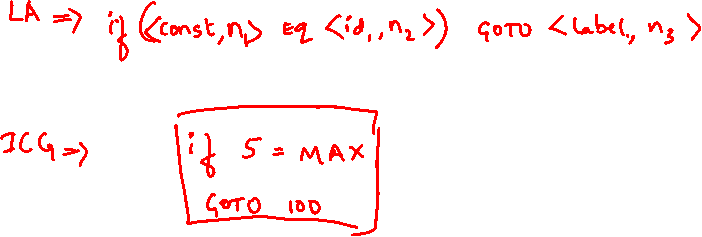 LA => if (<const, n1> Eq <id, n2>) GOTO <label, n3>
ICG => if 5 = MAX
GOTO 100